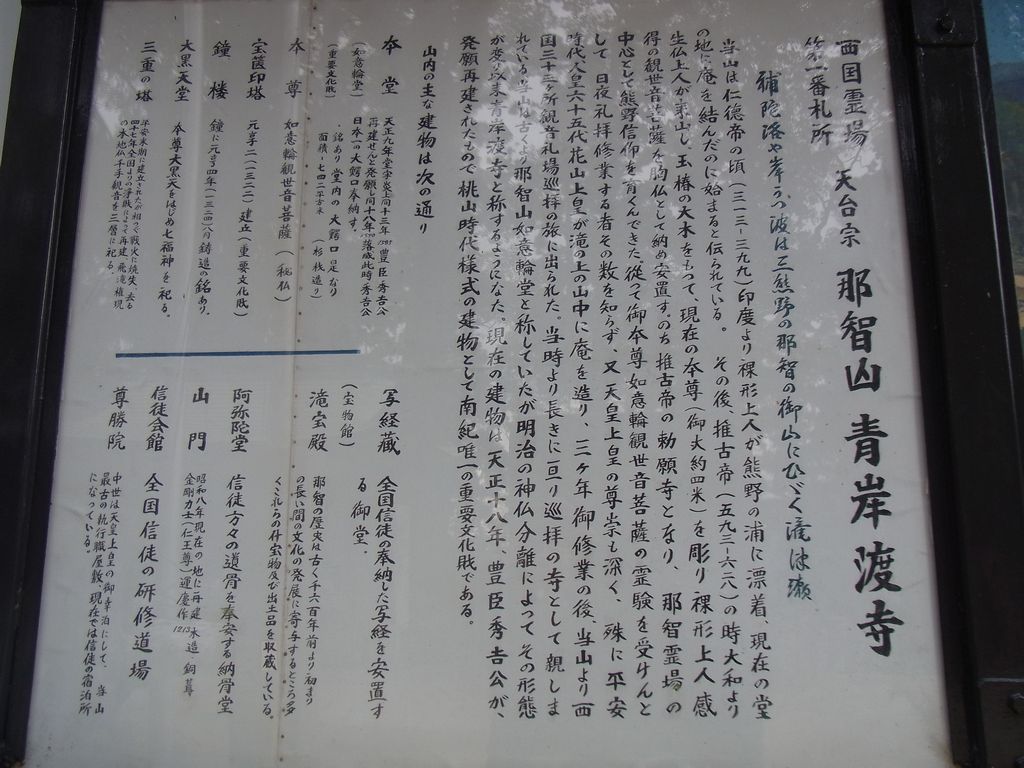 西国霊場 天台宗 那智山 青岸渡寺
第一番札所
補陀洛や岸うつ波は三熊野の那智の御山にひゞく滝津瀬
当山は仁徳帝の頃（三一三-三九九）印度より裸形上人が熊野の浦に漂着、現在の堂
の地に庵を結んだのに始まると伝られている。その後、推古帝（五九三-六二八）の時大和より
生仏上人が来山し、玉椿の大木をもって、現在の本尊（御丈約四米）を彫り裸形上人感
得の観世音菩薩を胸仏として納め安置す。のち推古帝の勅願寺となり、那智霊場の
中心として熊野信仰を育くんできた。従って御本尊如意輪観世音菩薩の霊験を受けんと
して日夜礼拝修業する者その数を知らず、又天皇上皇の尊崇も深く、殊に平安
時代人皇六十五代花山上皇が滝の上の山中に庵を造り、三ヶ年御修業の後、当山より西
国三十三ヶ所観音札場巡拝の旅に出られた。当時より長きに亘り巡拝の寺として親しま
れている。当山は古くより那智山如意輪堂と称していたが明治の神仏分離によってその形態
が変り以来青岸渡寺と称するようになった。現在の建物は天正十八年、豊臣秀吉公が、
発願再建されたもので桃山時代様式の建物として南紀唯一の重要文化財である。
山内の主な建物は次の通り
本堂
（如意輪堂）
（重要文化財）
天正九年堂宇炎上同十三年豊臣秀吉公
再建せんと発願し同十八年落成此時秀吉公
日本一の大鰐口奉納す。
銘あり堂内の大鰐口是なり
面積-七四二平方米（杉柿造り）
本尊 如意輪観世音菩薩（秘仏）
宝篋印塔 元享二（一三二二）建立（重要文化財）
鐘楼 鐘に元享四年（一三二四）の鋳造の銘あり。
大黒天堂 本尊大黒天をはじめ七福神を祀る。
三重の塔
平安末期に建立されたが相つぐ戦火に焼失、去る
四十七年全国よりの浄財によって再建、飛滝権現
の本地仏千手観音を三層に祀る。
写経蔵 全国信徒の奉納した写経を安置す
る御堂。
（宝物館）
滝宝殿
那智の歴史は古く千六百年前より始まり
の長い間の文化の発展に寄与するところ多
くこれらの什宝物及び出土品を取蔵している。
阿弥陀堂 信徒方々の遺骨を奉安する納骨堂
山門
昭和八年現在の地に再建
金剛力士（仁王尊）運慶作 1213 木造
信徒会館 全国信徒の研修道場
尊勝院
中世は天皇上皇の御幸泊にして、当山
最古の執行職屋敷、現在では信徒の宿泊所
になっている。